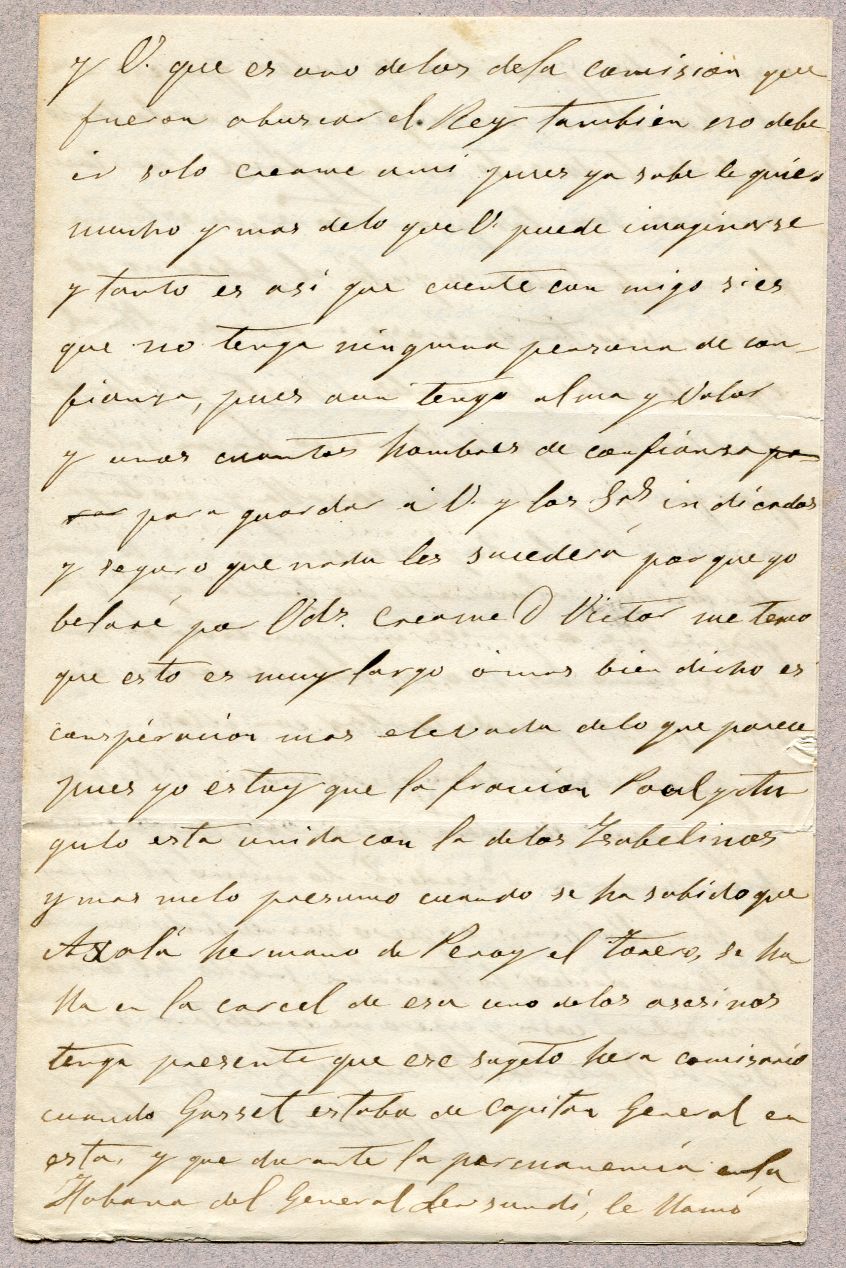 y V. que es uno delos dela comision que
fueron abuscar el Rey tambien no debe
ir solo creame ami pues ya sabe le quiero
mucho y mas delo que V. puede imaginarse
y tanto es asi que cuente con migo si es
que no tenga ninguna persona de con-
fianza, pues aun tengo alma y Valor
y unos cuantos hombres de confianza pa
rar para guardar á V. y los Srs indicados
y seguro que nada les sucederá porque yo
belaré por Vds. creame D Victor me temo
que esto es muy largo ó mas bien dicho es
conspiración mas elevada delo que parece
pues yo estoy que la fraccion Paul y Au
gulo esta unida con la delos Isabelinos
y mas melo presumo cuando se ha sabido que
hermano de Peroy el torero, se ha
lla en la carcel de esa uno delos asesinos
tenga presente que ese sugeto hera comisario
cuando Gasset estaba de Capitan General en
esta, y que durante la permanencia en la
Habana del General Lersundi, le llamó